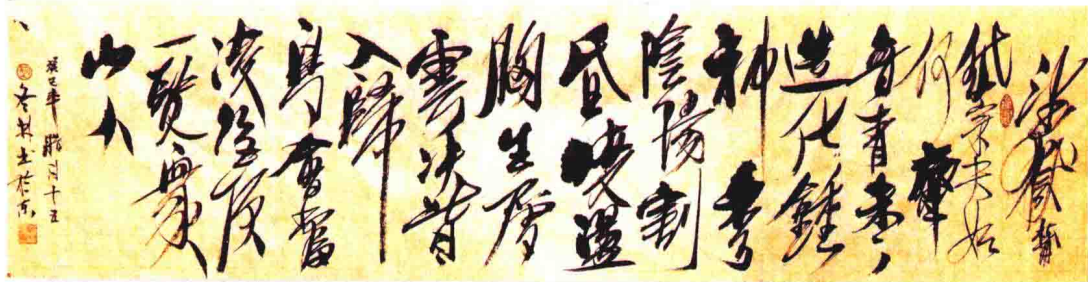 岱宗夫如
何齊
魯青未了
造化鍾
神秀
陰陽割
昏曉盪
胸生層
雲決眥
入歸
鳥會當
凌絕頂
一覽眾
山小
癸巳年臘月十五
冬林书於京